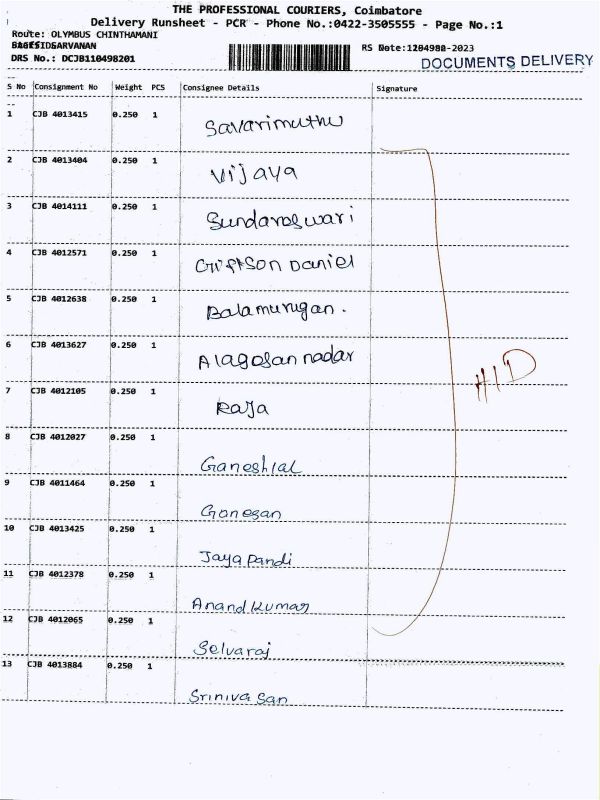 THE PROFESSIONAL COURIERS, Coimbatore
Delivery Runsheet - PCR - Phone No.:0422-3505555 - Page No.:1
Route: OLYMBUS CHINTHAMANI
SARVANAN
RS Date:1204980-2023
DRS No.: DCJB110498201
DOCUMENTS DELIVERY
S No Consignment No Weight PCS Consignee Details Signature
1 CJB 4013415 0.250 1 Savarimuthu
2 CJB 4013404 0.250 1 Vijaya
3 CJB 4014111 0.250 1 Sundareswari
4 CJB 4012571 0.250 1 Griftson Daniel
5 CJB 4012638 0.250 1 Balamurugan.
6 CJB 4013627 0.250 1 Alagosan nadar
7 CJB 4012105 0.250 1 Raja
8 CJB 4012027 0.250 1 Ganeshlal
9 CJB 4011464 0.250 1 Ganesan
10 CJB 4013425 0.250 1 Jaya Pandi
11 CJB 4012378 0.250 1 Anand Kumar
12 CJB 4012065 0.250 1 Selvaraj
13 CJB 4013884 0.250 1 Srinivasan
H/D